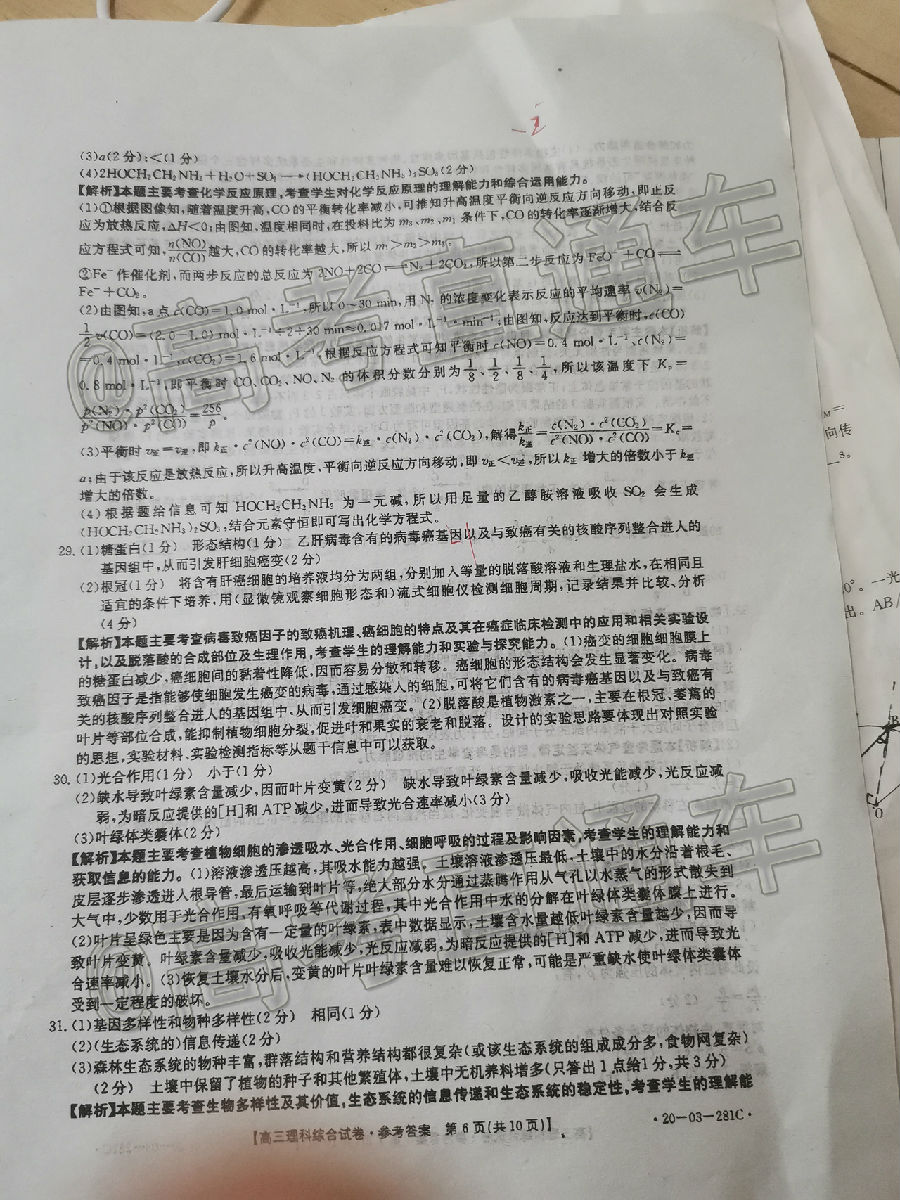 (3)a(2分);<(1分)
(4)2HOCH₂CH₂NH₂+H₂O+SO₂⟶(HOCH₂CH₂NH₃)₂SO₃(2分)
【解析】本题主要考查化学反应原理,考查学生对化学反应原理的理解能力和综合运用能力。
(1)①根据图像知,随着温度升高,CO的平衡转化率减小,可推知升高温度平衡向逆反应方向移动,即正反
应为放热反应,ΔH<0;由图知,温度相同时,在投料比为m₃、m₂、m₁条件下,CO的转化率逐渐增大,结合反
应方程式可知,n(NO)/n(CO)越大,CO的转化率越大,所以m₁>m₂>m₃。
作催化剂,而两步反应的总反应为2NO+2CO⇌N₂+2CO₂,所以第二步反应为
(2)由图知,a点c(CO)=1.0 mol·L⁻¹,所以0~30 min,用N₂的浓度变化表示反应的平均速率v(N₂)=
1/2v(CO)=(2.0−1.0) mol·L⁻¹÷2÷30 min≈0.017 mol·L⁻¹·min⁻¹;由图知,反应达到平衡时,c(CO)
=0.4 mol·L⁻¹,c(CO₂)=1.6 mol·L⁻¹,根据反应方程式可知平衡时c(NO)=0.4 mol·L⁻¹,c(N₂)=
0.8 mol·L⁻¹,即平衡时CO、CO₂、NO、N₂的体积分数分别为1/8、1/2、1/8、1/4,所以该温度下Kₚ=
p(N₂)·p²(CO₂)/p²(NO)·p²(CO)=256/p。
(3)平衡时v正=v逆,即k正·c²(NO)·c²(CO)=k逆·c(N₂)·c²(CO₂),解得k正/k逆=c(N₂)·c²(CO₂)/c²(NO)·c²(CO)=Kc=
a;由于该反应是放热反应,所以升高温度,平衡向逆反应方向移动,即v正<v逆,所以k正增大的倍数小于k逆
增大的倍数。
(4)根据题给信息可知HOCH₂CH₂NH₂为一元碱,所以用足量的乙醇胺溶液吸收SO₂会生成
(HOCH₂CH₂NH₃)₂SO₃,结合元素守恒即可写出化学方程式。
29.(1)糖蛋白(1分) 形态结构(1分) 乙肝病毒含有的病毒癌基因以及与致癌有关的核酸序列整合进人的
基因组中,从而引发肝细胞癌变(2分)
(2)根冠(1分) 将含有肝癌细胞的培养液均分为两组,分别加入等量的脱落酸溶液和生理盐水,在相同且
适宜的条件下培养,用(显微镜观察细胞形态和)流式细胞仪检测细胞周期,记录结果并比较、分析
(4分)
【解析】本题主要考查病毒致癌因子的致癌机理、癌细胞的特点及其在癌症临床检测中的应用和相关实验设
计,以及脱落酸的合成部位及生理作用,考查学生的理解能力和实验与探究能力。(1)癌变的细胞细胞膜上
的糖蛋白减少,癌细胞间的黏着性降低,因而容易分散和转移。癌细胞的形态结构会发生显著变化。病毒
致癌因子是指能够使细胞发生癌变的病毒,通过感染人的细胞,可将它们含有的病毒癌基因以及与致癌有
关的核酸序列整合进人的基因组中,从而引发细胞癌变。(2)脱落酸是植物激素之一,主要在根冠,萎蔫的
叶片等部位合成,能抑制植物细胞分裂,促进叶和果实的衰老和脱落。设计的实验思路要体现出对照实验
的思想,实验材料、实验检测指标等从题干信息中可以获取。
30.(1)光合作用(1分) 小于(1分)
(2)缺水导致叶绿素含量减少,因而叶片变黄(2分) 缺水导致叶绿素含量减少,吸收光能减少,光反应减
弱,为暗反应提供的[H]和ATP减少,进而导致光合速率减小(3分)
(3)叶绿体类囊体(2分)
【解析】本题主要考查植物细胞的渗透吸水、光合作用、细胞呼吸的过程及影响因素,考查学生的理解能力和
获取信息的能力。(1)溶液渗透压越高,其吸水能力越强。土壤溶液渗透压最低,土壤中的水分沿着根毛、
皮层逐步渗透进入根导管,最后运输到叶片等,绝大部分水分通过蒸腾作用从气孔以水蒸气的形式散失到
大气中,少数用于光合作用,有氧呼吸等代谢过程,其中光合作用中水的分解在叶绿体类囊体膜上进行。
(2)叶片呈绿色主要是因为含有一定量的叶绿素,表中数据显示,土壤含水量越低叶绿素含量越少,因而导
致叶片变黄。叶绿素含量减少,吸收光能减少,光反应减弱,为暗反应提供的[H]和ATP减少,进而导致光
合速率减小。(3)恢复土壤水分后,变黄的叶片叶绿素含量难以恢复正常,可能是严重缺水使叶绿体类囊体
受到一定程度的破坏。
31.(1)基因多样性和物种多样性(2分) 相同(1分)
(2)(生态系统的)信息传递(2分)
(3)森林生态系统的物种丰富,群落结构和营养结构都很复杂(或该生态系统的组成成分多,食物网复杂)
(2分) 土壤中保留了植物的种子和其他繁殖体,土壤中无机养料增多(只答出1点给1分,共3分)
【解析】本题主要考查生物多样性及其价值,生态系统的信息传递和生态系统的稳定性,考查学生的理解能
【高三理科综合试卷·参考答案 第6页(共10页)】
·20-03-281C·
@高考直通车
@高考直通车
向传
0°。一光
出。AB/
B
O